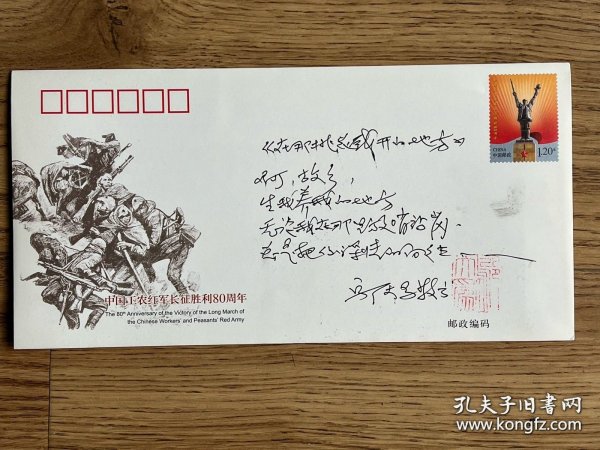 CHINA
中国邮政
1.20元
《在那桃花盛开的地方》
啊,故乡
生我养我的地方
无论我在那里放哨站岗
总是把你深情的向往
中国工农红军长征胜利80周年
The 80th Anniversary of the Victory of the Long March of
the Chinese Workers' and Peasants' Red Army
邮政编码
孔夫子旧书网
www.kongfz.com